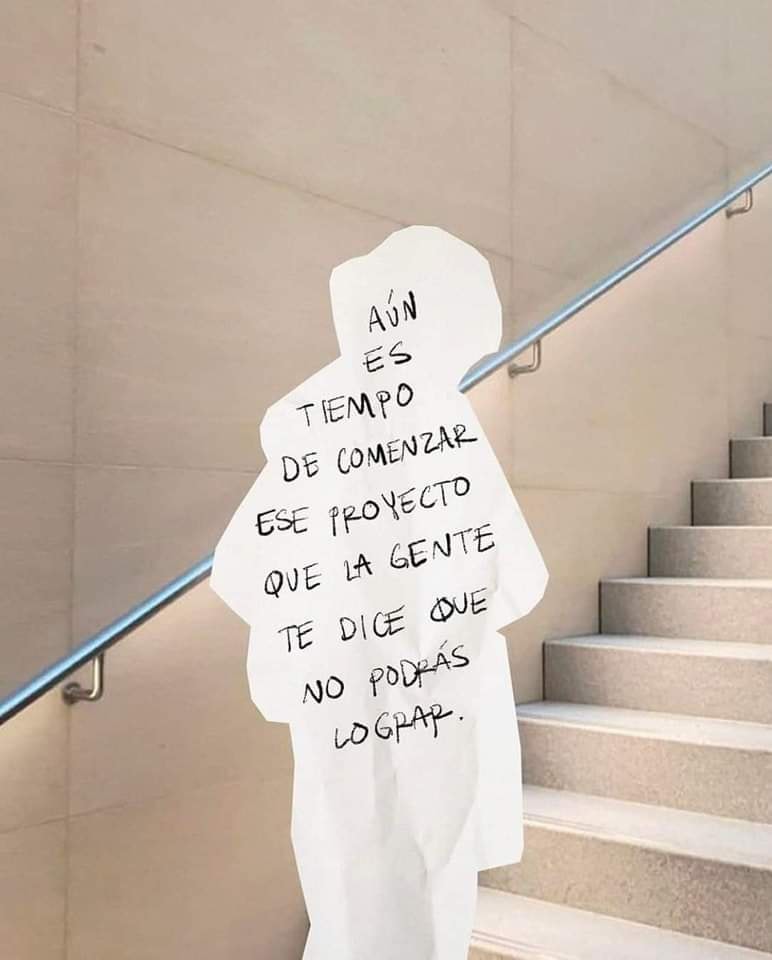 AÚN
ES
TIEMPO
DE COMENZAR
ESE PROYECTO
QUE LA GENTE
TE DICE QUE
NO PODRÁS
LOGRAR.